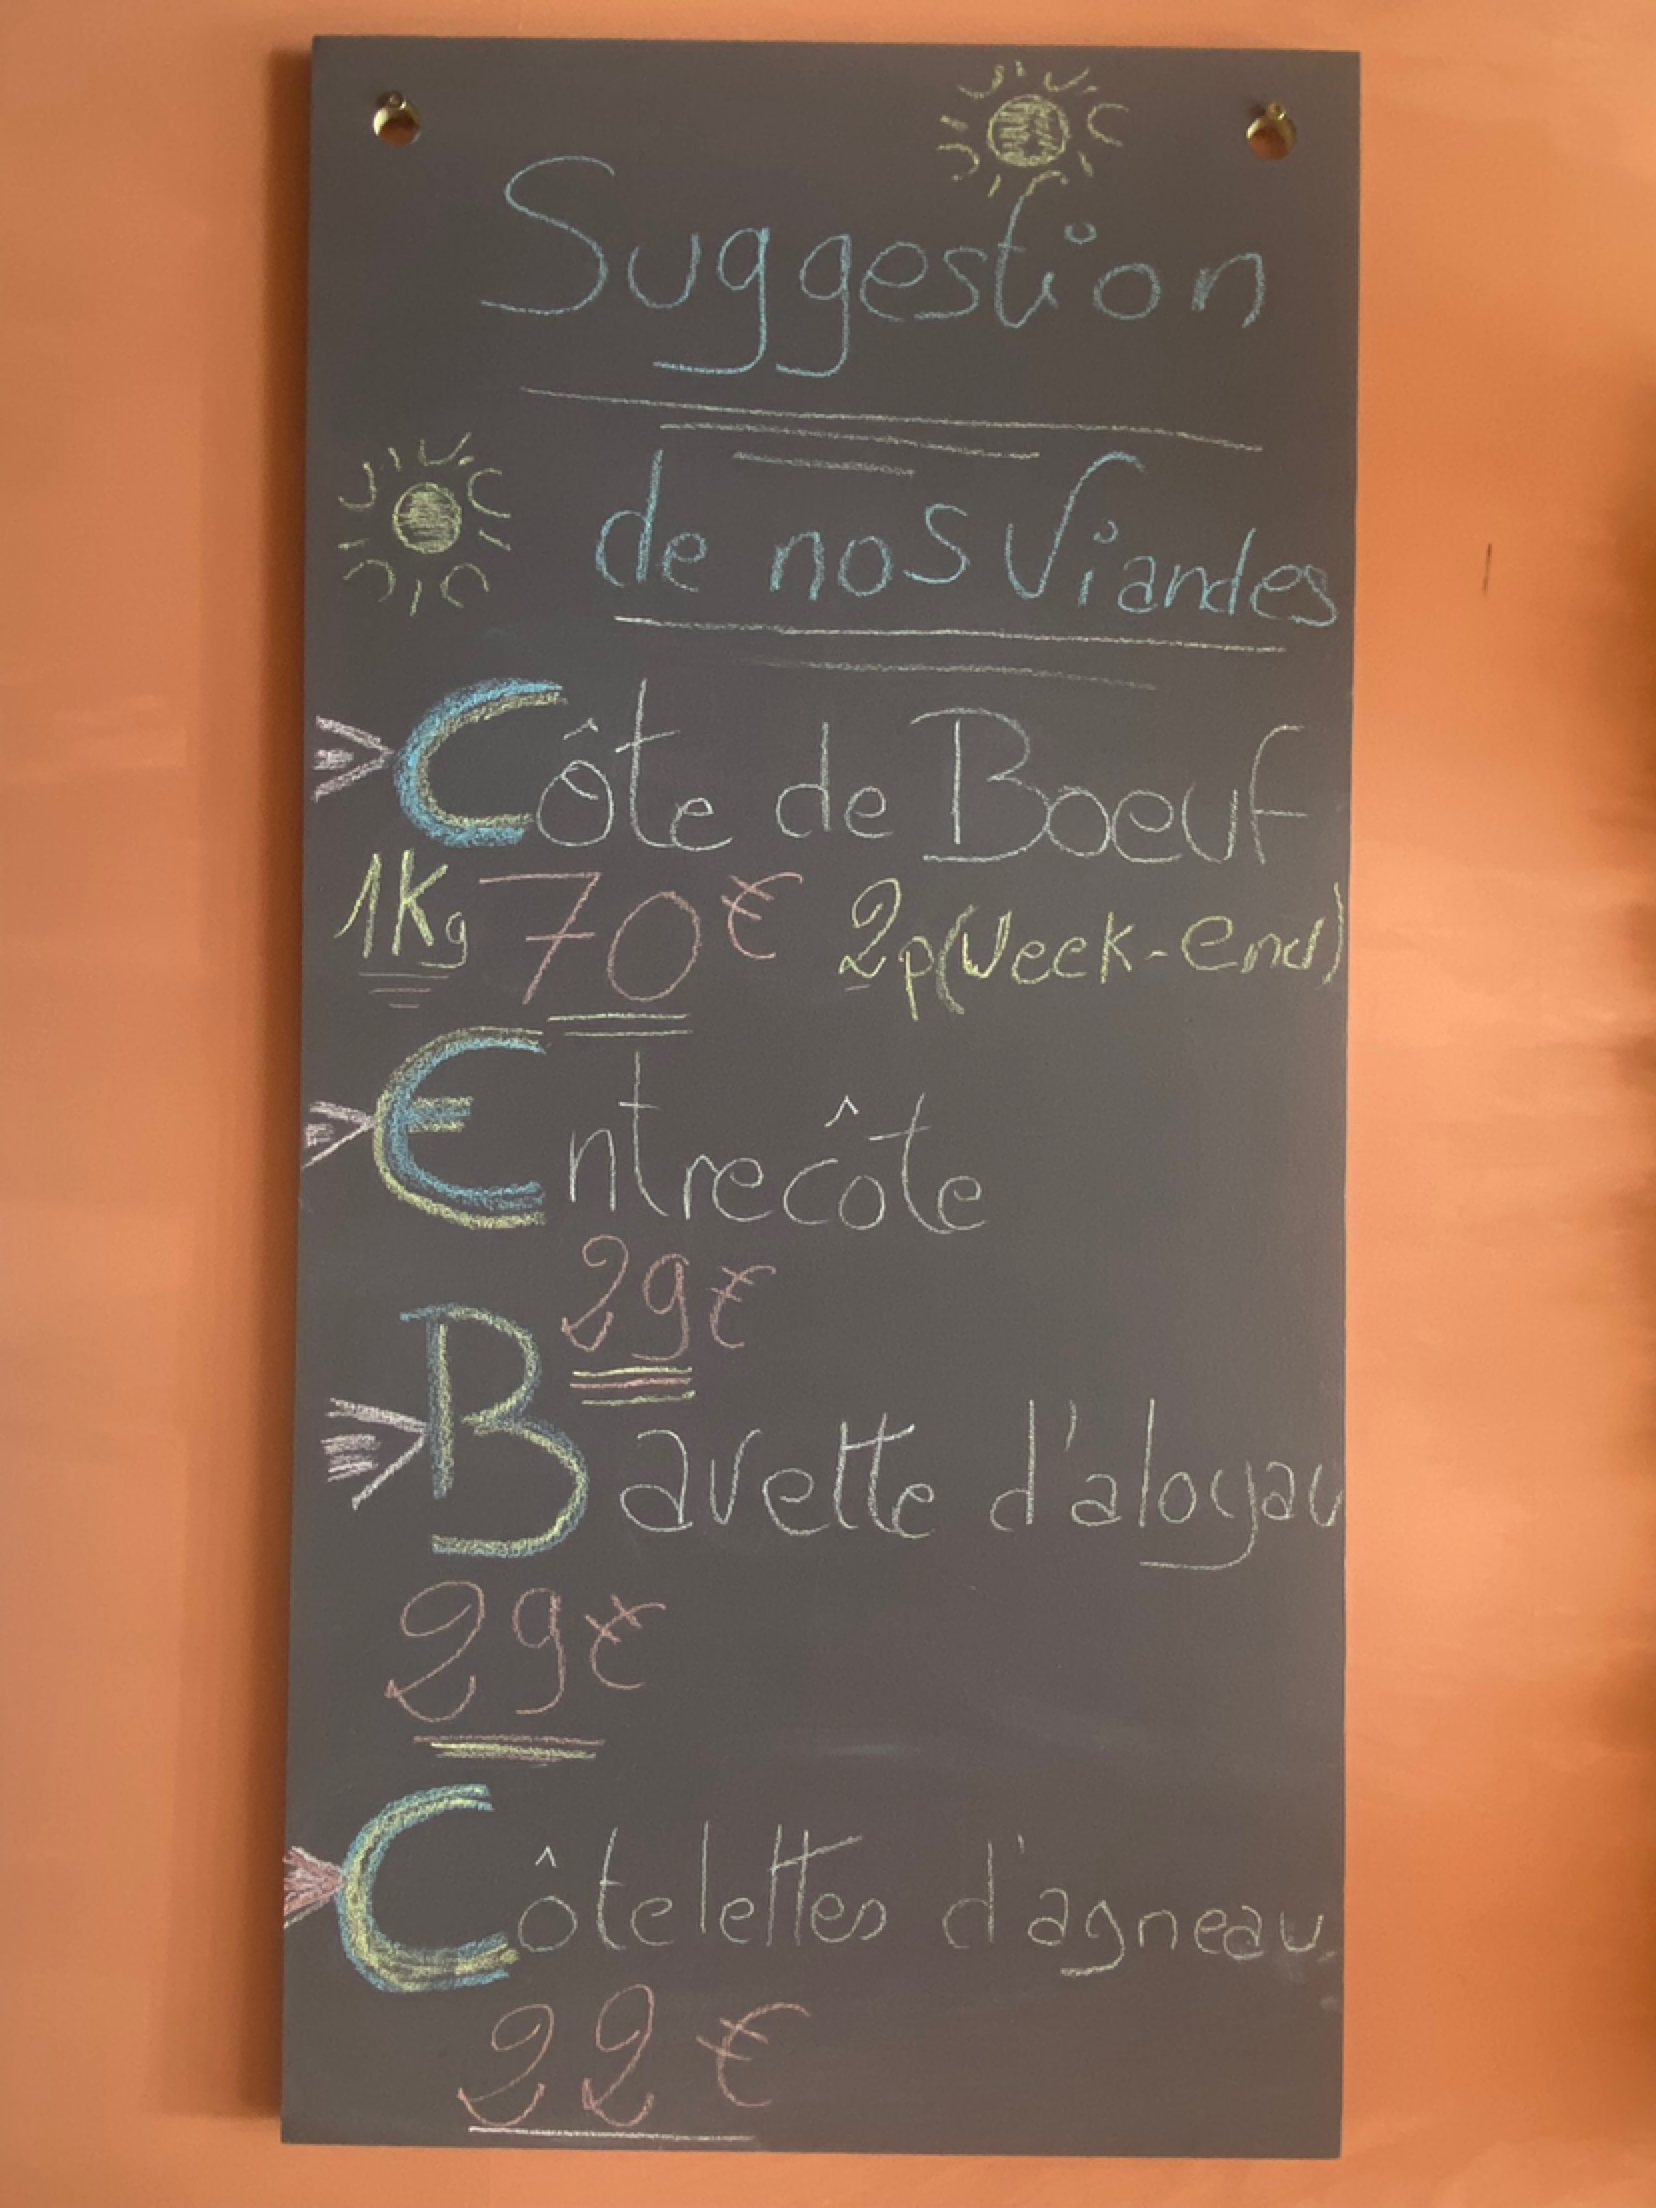 Suggestion
de nos Viandes
Côte de Boeuf
1Kg 70€ 2p(Week-end)
Entrecôte
29€
Bavette d'aloyau
29€
Côtelettes d'agneau
22€